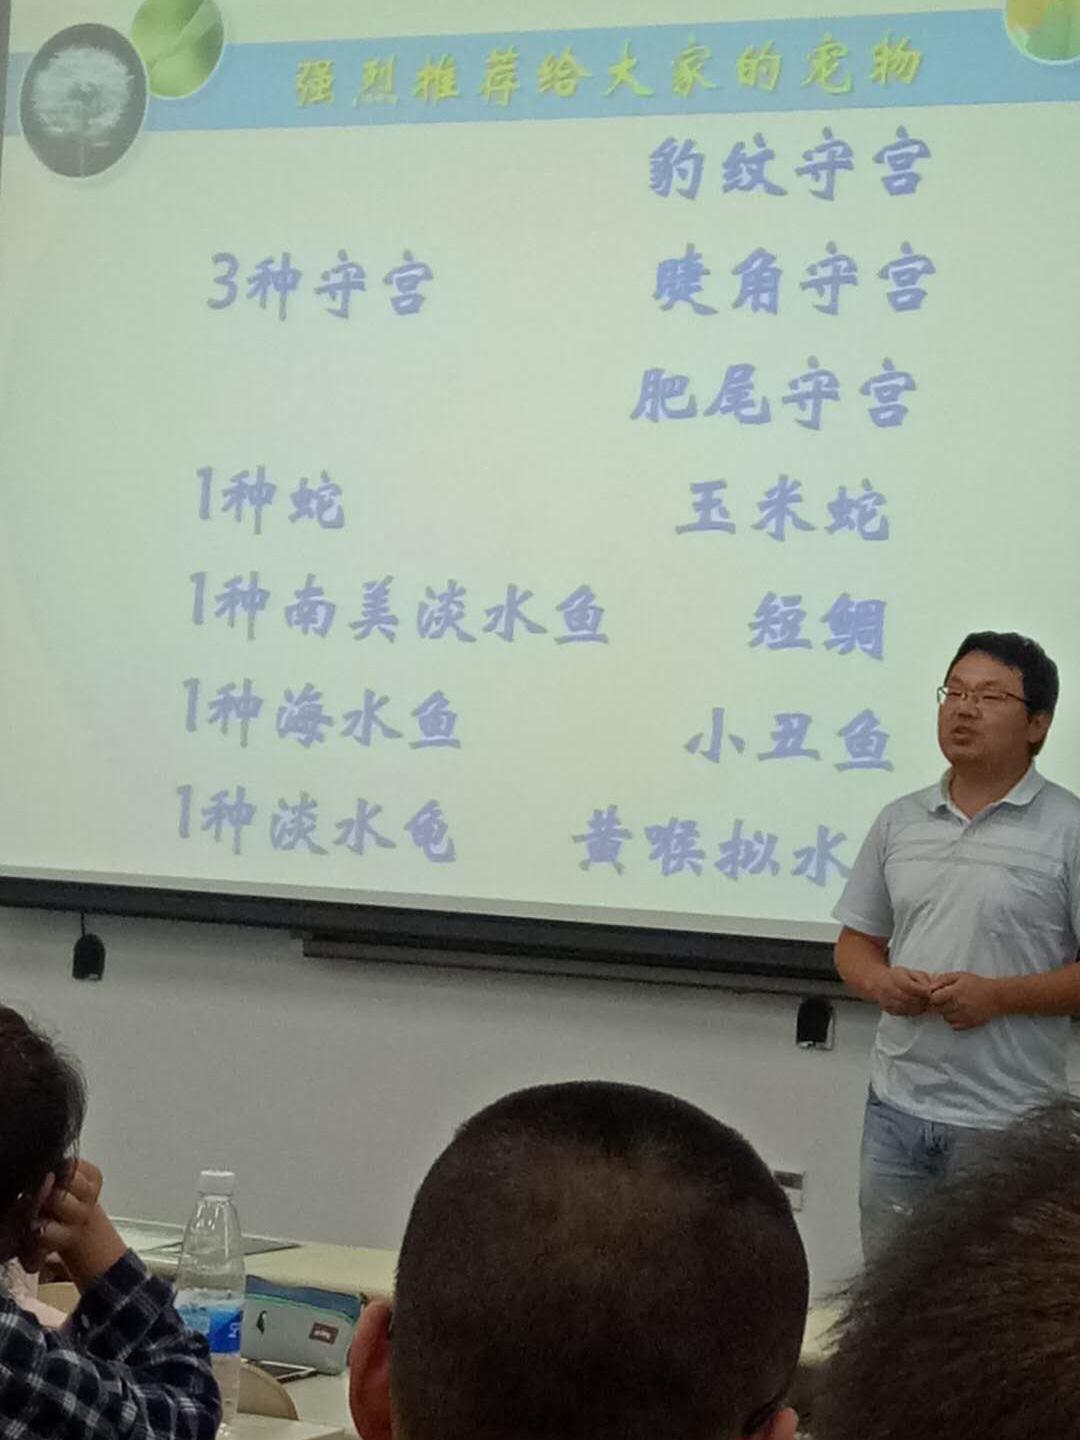 强烈推荐给大家的宠物
豹纹守宫
3种守宫
睫角守宫
肥尾守宫
1种蛇 玉米蛇
1种南美淡水鱼 短鲷
1种海水鱼 小丑鱼
1种淡水龟 黄喉拟水